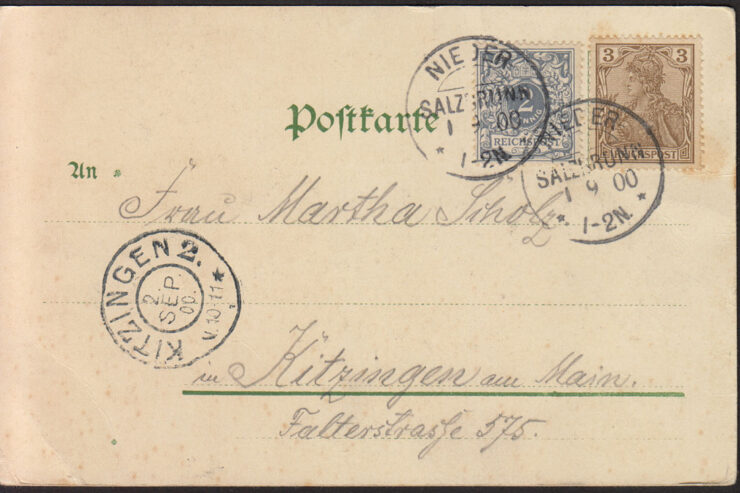 NIEDER
SALZBRUNN
1 9 00
* 1-2N.
2
REICHSPOST
3 3
REICHSPOST
NIEDER
SALZBRUNN
1 9 00
* 1-2N. *
Postkarte
An
Frau Martha Scholz
KITZINGEN 2. *
2
SEP.
00.
V. 10-11
in Kitzingen am Main.
Falterstrasse 575.